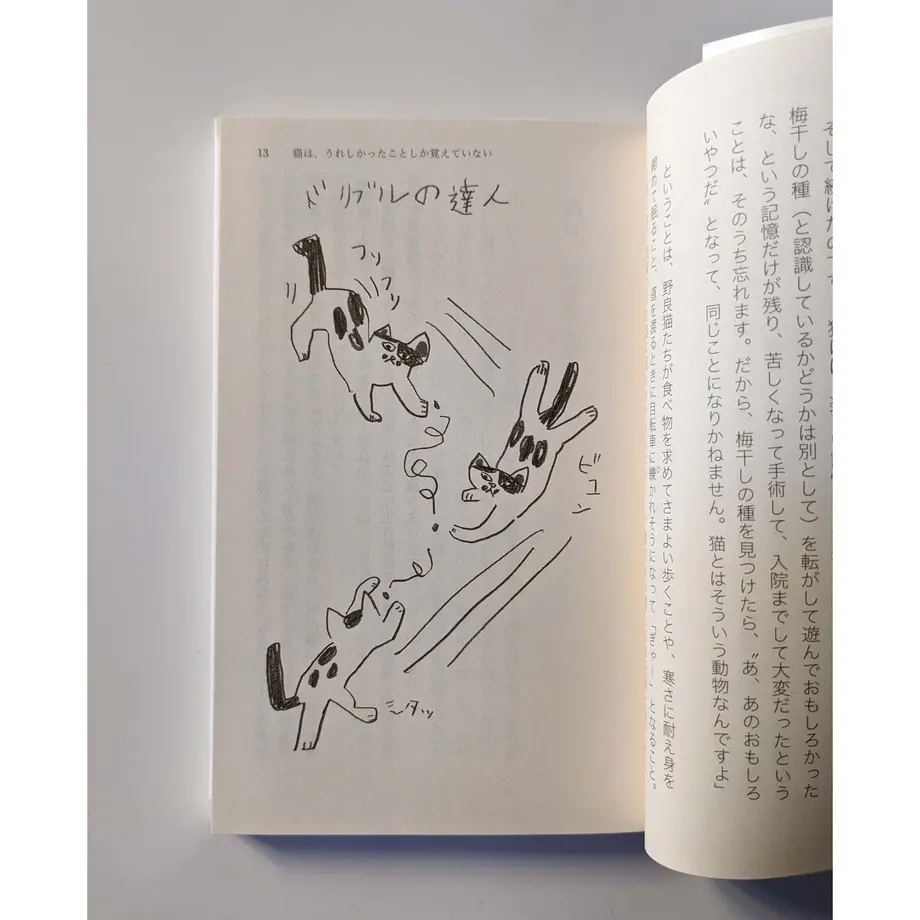 そして続けたのです
梅干しの種（と認識しているかどうかは別として）を転がして遊んでおもしろかった
な、という記憶だけが残り、苦しくなって手術して、入院までして大変だったという
ことは、そのうち忘れます。だから、梅干しの種を見つけたら、〝あ、あのおもしろ
いやつだ〟となって、同じことになりかねません。猫とはそういう動物なんですよ」
ということは、野良猫たちが食べ物を求めてさまよい歩くことや、寒さに耐え身を
縮めて眠ること、道を渡るときに自転車に轢かれそうになって「ぎゃー！」となること。
13 猫は、うれしかったことしか覚えていない
ドリブルの達人
フリ
フリ
ビュン
シタッ